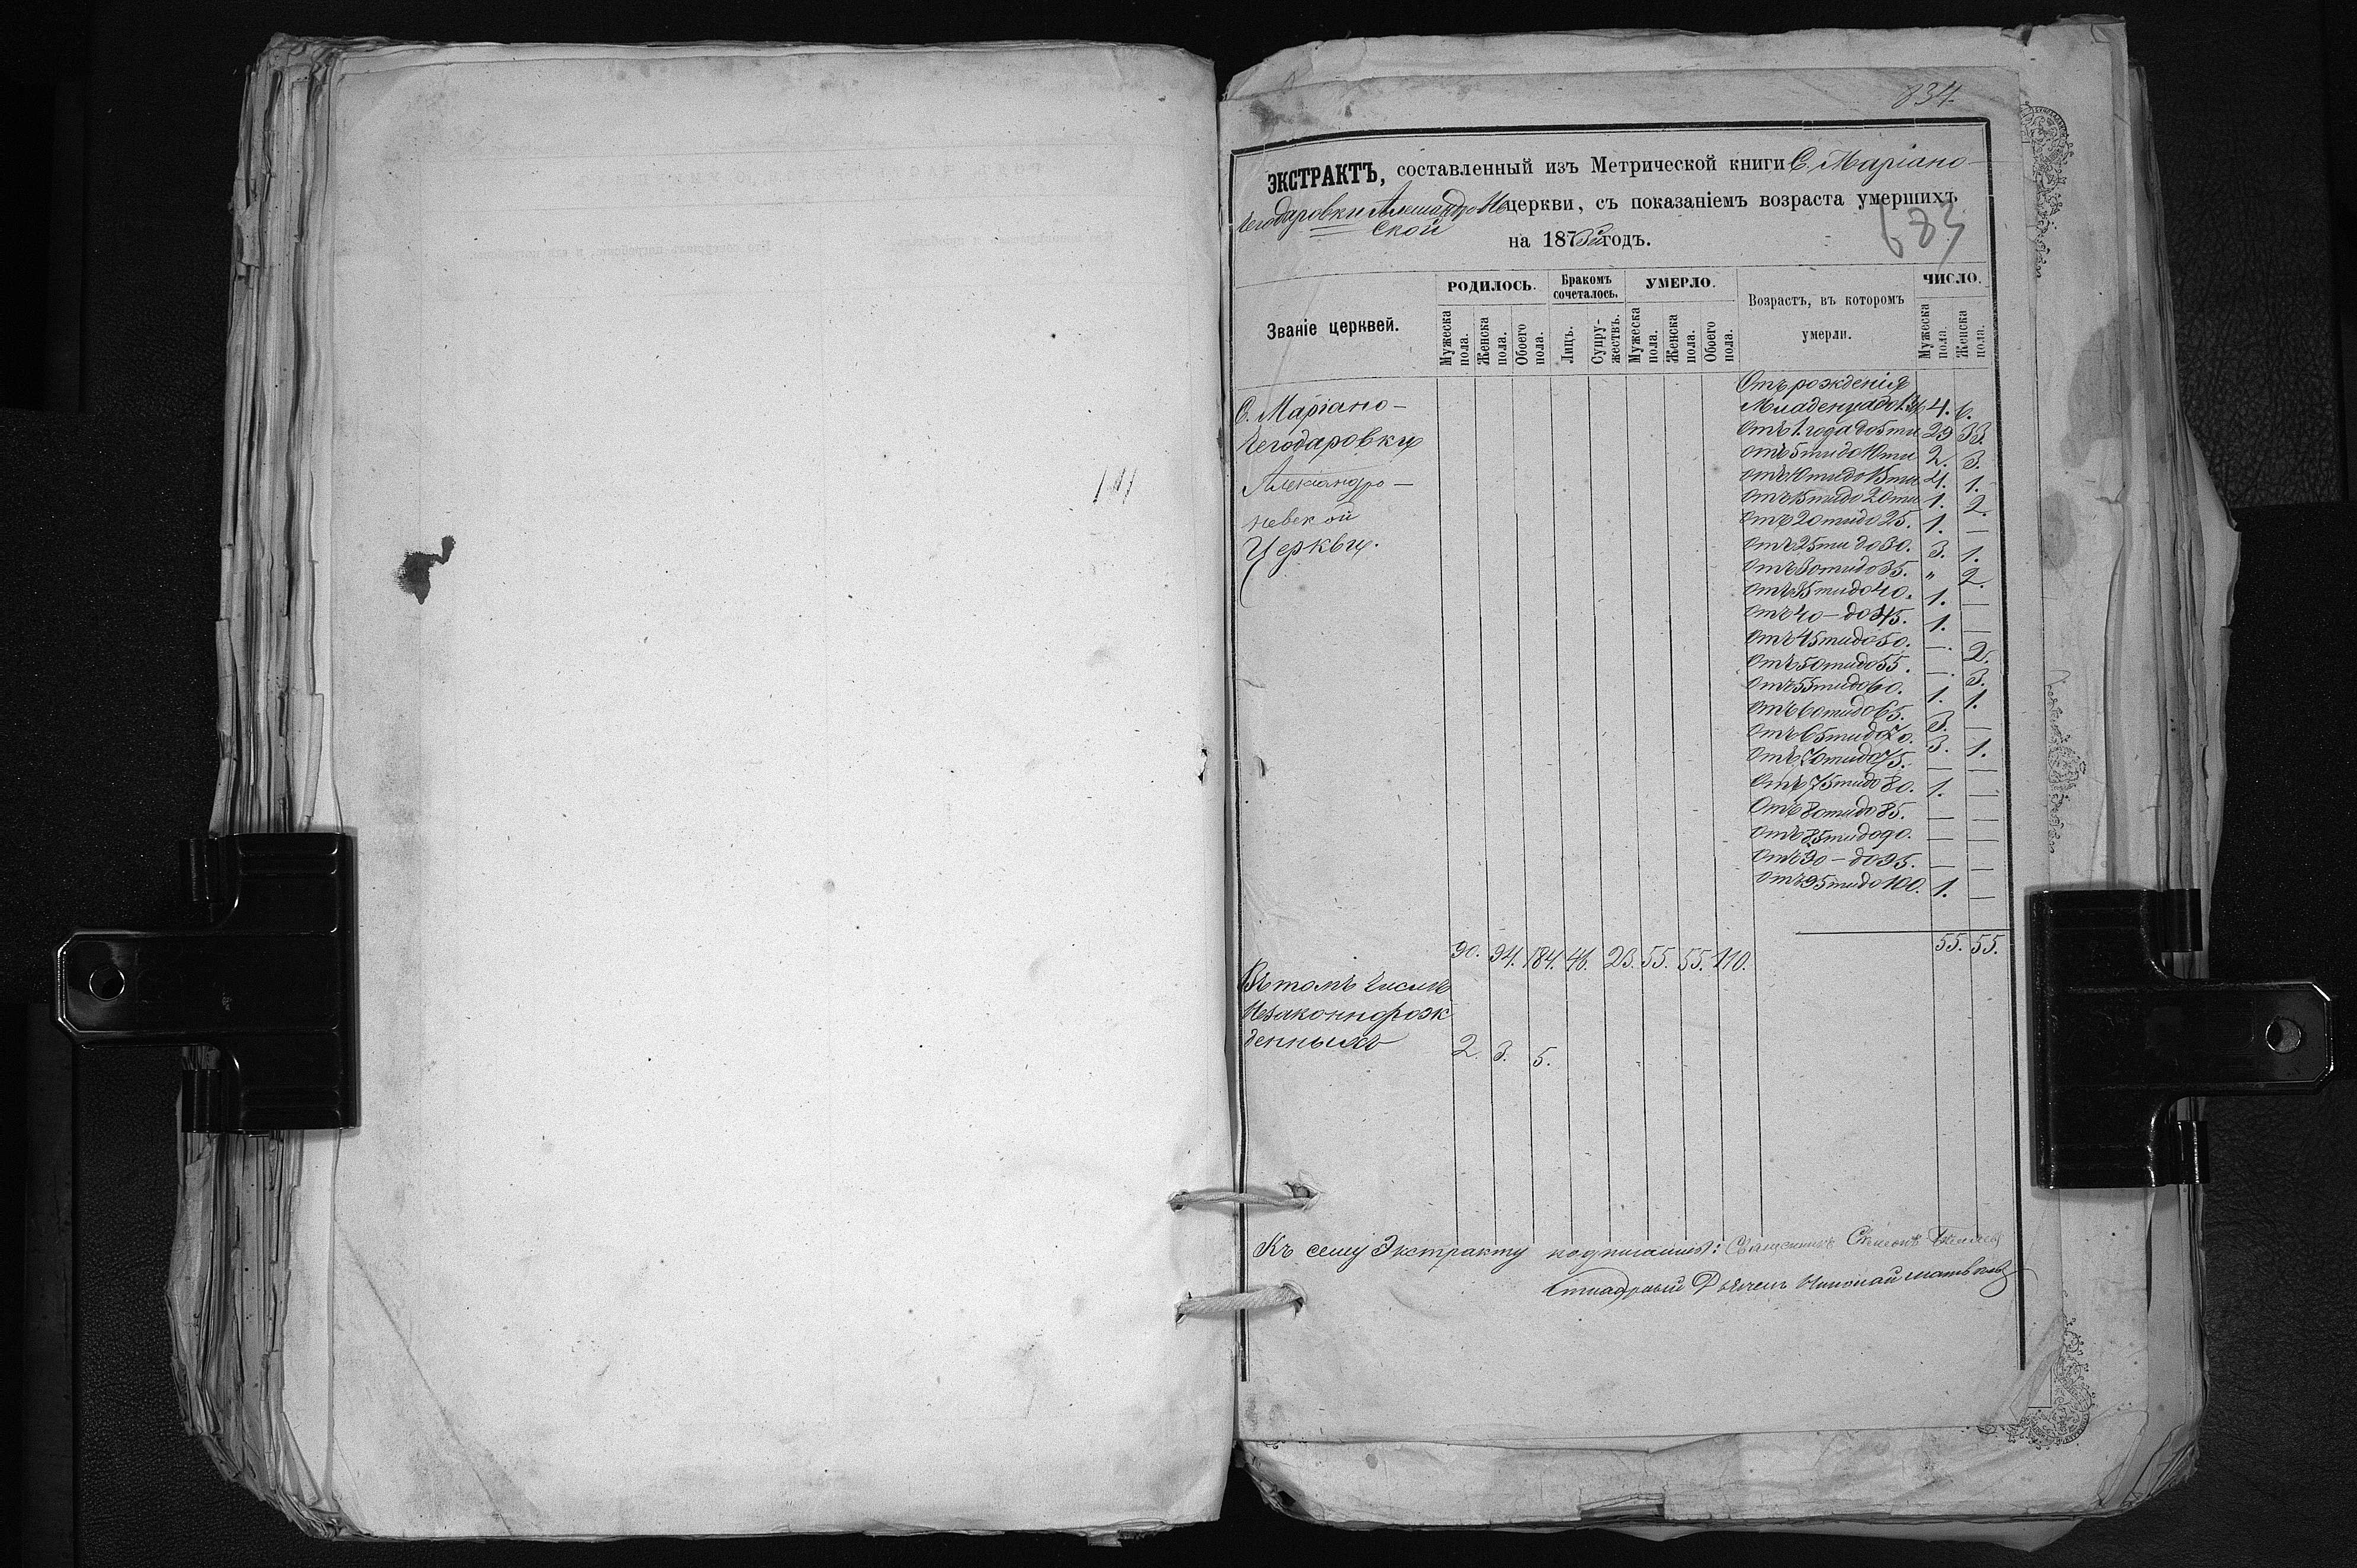 834.
ЭКСТРАКТЪ, составленный изъ Метрической книги С. Маріано-
Чегодаровки Александро Не церкви, съ показаніемъ возраста умершихъ
ской
на 1873й годъ.
683
Званіе церквей.
РОДИЛОСЬ.
Бракомъ сочеталось.
УМЕРЛО.
Возрастъ, въ которомъ умерли.
ЧИСЛО.
Мужеска пола.
Женска пола.
Обоего пола.
Лицъ.
Супружествъ.
Мужеска пола.
Женска пола.
Обоего пола.
Мужеска пола.
Женска пола.
С. Маріано-
Чегодаровки
Александро-
невской
Церкви.
Отъ рожденія
Младенца до 4. 6.
Отъ 1. года до 5ти 29 33.
отъ 5ти до 10ти 2. 3.
отъ 10ти до 15ти 4. 1.
отъ 15ти до 20ти 1. 2.
отъ 20ти до 25. 1. —
отъ 25ти до 30. 3. 1.
отъ 30ти до 35. " 2.
отъ 35ти до 40. 1. —
отъ 40 — до 45. 1. —
отъ 45ти до 50. —. 2.
отъ 50ти до 55. —. 3.
отъ 55ти до 60. 1. 1.
отъ 60ти до 65. 3. —
отъ 65ти до 70. 3. 1.
отъ 70ти до 75. — —
отъ 75ти до 80. 1. —
отъ 80ти до 85. — —
отъ 85ти до 90. — —
отъ 90 — до 95. — —
отъ 95ти до 100. 1. —
90. 94. 184. 46. 23. 55. 55. 110. 55. 55.
Въ томъ числѣ
Незаконнорож
денныхъ 2. 3. 5.
Къ сему Экстракту подписались: Священникъ Симеонъ
Николай